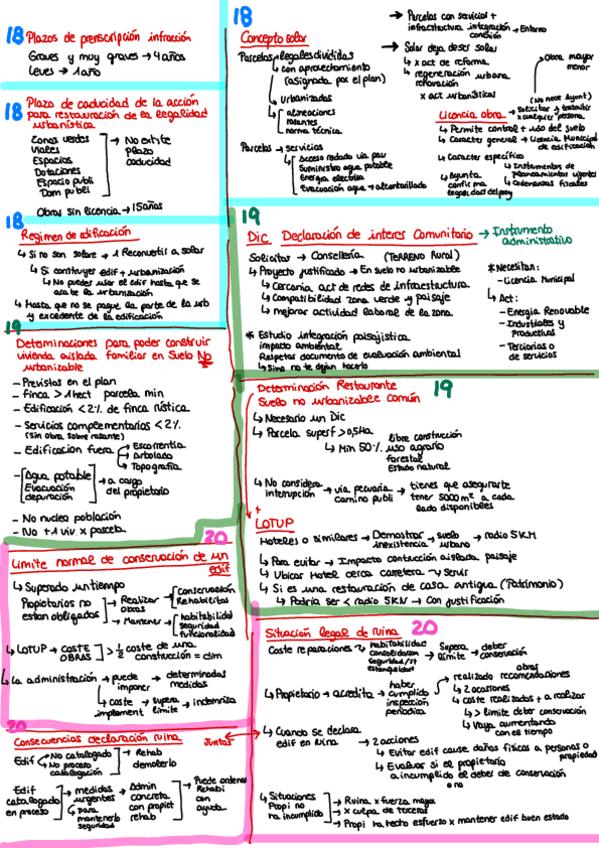 18 Plazos de prenscripción infracción
Graves y muy graves → 4 años
Leves → 1 año
18 Plazo de caducidad de la acción
para restauración de la legalidad
urbanística
Zonas verdes
Viales
Espacios
Dotaciones
Espacio publi
Dom publi
→ No existe
plazo
caducidad
Obras sin licencia → 15 años
18
Regimen de edificación
↳ Si no son solare → 1 Reconvertir a solar
↳ Si construyer edif + urbanización
↳ No puedes usar el edif hasta que se
acabe la urbanización
↳ Hasta que no se pague la parte de la urb
y excedente de la edificación
19
Determinaciones para poder construir
vivienda aislada familiar en Suelo No
urbanizable
- Previstas en el plan
- finca > 1 hect parcela min
- Edificación < 2% de finca rústica
- Servicios complementarios < 2%
(sin obra sobre rasante)
- Edificacion fuera
→ Escorrentia
→ Arbolado
→ Topografía
- Agua potable
Evacuación
depuración
→ a cargo
del propietario
- No nucleo población
- No + 1 viv. x parcela
20
Limite normal de conservación de un
edif
↳ Superado un tiempo
Propietarios no
estan obligados
→ Realizar
obras
→ conservación
Rehabilitar
→ Mantener
→ habitabilidad
seguridad
funcionalidad
↳ LOTUP → COSTE
OBRAS
> 1/2 coste de una
construcción = dim
↳ La administración → puede
imponer
→ determinadas
medidas
↳ coste → supera → indemniza
implement limite
20
Consecuencias declaración ruina
Juntas
Edif
→ No catalogado
→ No proceso
catalogación
→ Rehab
demolerlo
Edif
catalogado
en proceso
→ medidas
urgentes
↳ para
mantenerlo
seguridad
→ Admin
concreta
con propiet
rehab
→ Puede ordenar
Rehabi
con
ayuda
18
Concepto solar
Parcelas → legales divididas
↳ con aprovechamiento
(asignada por el plan)
↳ Urbanizadas
↳ alineaciones
rasantes
norma técnica
Parcelas → servicios
↳ Acceso rodado via pav
Suministro agua potable
Energia electrica
Evacuación agua → alcantarillado
→ Parcelas con servicios +
infraestructura integración → Entorno
condición
→ Solar deja de ser solar
↳ x act de reforma
↳ regeneración urbana
renovación
x act urbanísticas
→ Obra mayor
menor
(No nece Ayunt)
Licencia obra
→ Solicitar y tramitir
x cualquier persona
↳ Permite control + uso del suelo
↳ Caracter general → Licencia Municipal
de edificación
↳ Caracter especifico
↳ Ayunta
confirma
legalidad del proy
↳ Instrumentos de
Planeamientos vigentes
↳ Ordenanzas fiscales
19
Dic Declaración de interes Comunitario → Instrumento
administrativo
Solicitar → Conselleria (TERRENO Rural)
↳ Proyecto justificado → En suelo no urbanizable
↳ Cercania act de redes de infraestructura
↳ Compatibilidad zona verde y paisaje
↳ mejorar actividad laboral de la zona.
* Estudio integración paisajistica
impacto ambiental
Respetar documento de evaluación ambiental
↳ Sino no te dejan hacerlo
* Necesitan:
- Licencia Municipal
↳ Act:
- Energia Renovable
- Industriales y
Productivas
- Terciarias o
de servicios
Determinación Restaurante 19
Suelo no urbanizable común
↳ Necesario un Dic
↳ Parcela superf > 0,5Ha
↳ Min 50%
libre construcción
uso agrario
forestal
Estado natural
↳ No considera
interrupción
→ via pecuaria
camino publi
→ tienes que asegurarte
tener 5000 m² a cada
lado disponibles
+
LOTUP
Hoteles o similares → Demostrar → suelo → radio 5KM
inexistencia urbano
↳ Para evitar → Impacto contrucción aislada paisaje
↳ Ubicar Hotel cerca carretera → Servir
↳ Si es una restauración de casa antigua (Patrimonio)
↳ Podria ser < radio 5KM → Con justificación
Situación legal de ruina 20
Coste reparaciones
→ Habitabilidad
consolidación
seguridad/st
estanqueidad
Supera
límite
→ deber
conservación
↳ Propietario → acredita →
haber
cumplido
inspección
periodica
obras
→ realizado recomendaciones
↳ 2 ocasiones
↳ coste realizados + a realizar
↳ > limite deber conservación
↳ Vaya aumentando
con es tiempo
↳ Cuando se declara
edif en Ruina
→ 2 acciones
↳ Evitar edif cause daños físicas a personas o
propiedad
↳ Evaluar si el propietario
a incumplido el deber de conservación
o no
↳ Situaciones
Propi no
ha incumplido
→ Ruina x fuerza mayor
→ x culpa de terceros
→ Propi ha hecho esfuerzo x mantener edif buen estado